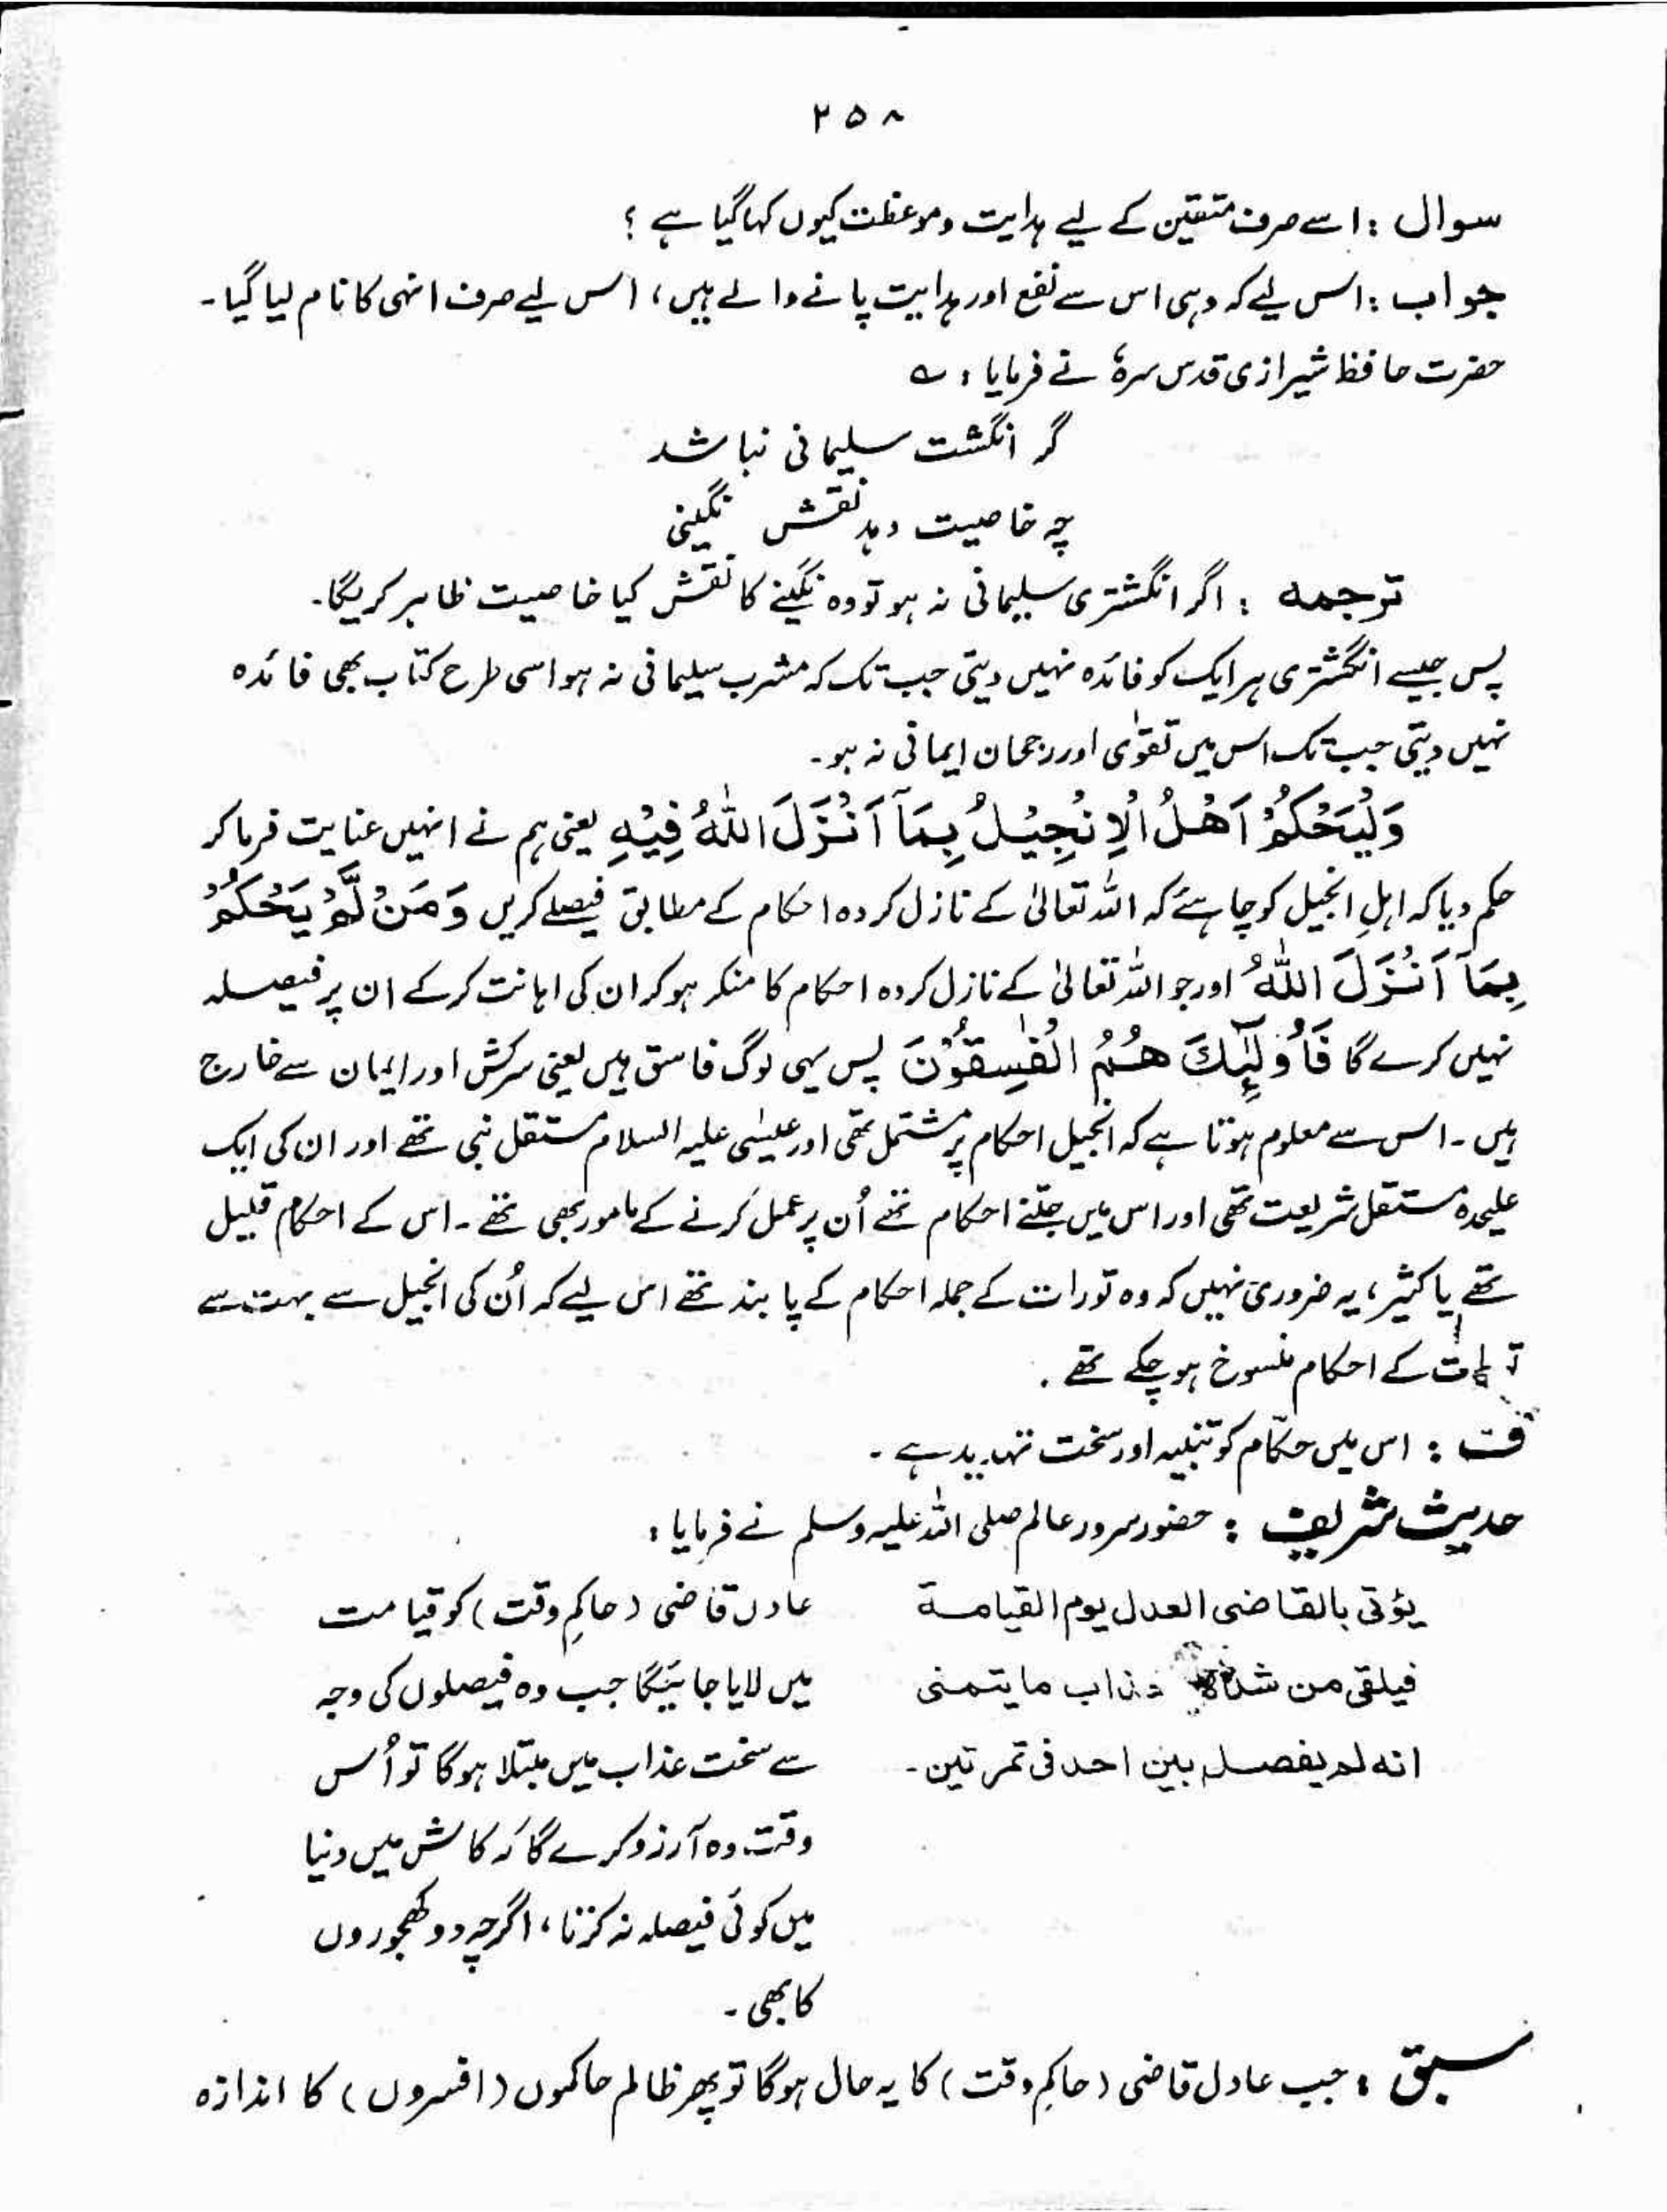 ۲۵۸
سوال : اسے صرف متقین کے لیے ہدایت و موعظت کیوں کہا گیا ہے ؟
جواب : اس لیے کہ وہی اس سے نفع اور ہدایت پانے والے ہیں ، اس لیے صرف انہی کا نام لیا گیا ۔
حضرت حافظ شیرازی قدس سرہٗ نے فرمایا : ؎
گر انگشت سلیمانی نباشد
چہ خاصیت دہد نقش نگینی
ترجمہ : اگر انگشتری سلیمانی نہ ہو تو وہ نگینے کا نقش کیا خاصیت ظاہر کریگا۔
پس جیسے انگشتری ہر ایک کو فائدہ نہیں دیتی جب تک کہ مشرب سیلمانی نہ ہو اسی طرح کتاب بھی فائدہ
نہیں دیتی جب تک اس میں تقوٰی اور رجحان ایمانی نہ ہو ۔
وَلْيَحْكُمْ اَهْلُ الْاِنْجِيْلِ بِمَآ اَنْزَلَ اللّٰهُ فِيْهِ یعنی ہم نے انہیں عنایت فرما کر
حکم دیا کہ اہلِ انجیل کو چاہئے کہ اللہ تعالیٰ کے نازل کردہ احکام کے مطابق فیصلے کریں وَ مَنْ لَّمْ يَحْكُمْ
بِمَآ اَنْزَلَ اللّٰهُ اور جو اللہ تعالیٰ کے نازل کردہ احکام کا منکر ہو کر ان کی اہانت کرکے ان پر فیصلہ
نہیں کرے گا فَاُولٰٓئِكَ هُمُ الْفٰسِقُوْنَ پس یہی لوگ فاسق ہیں یعنی سرکش اور ایمان سے خارج
ہیں ۔ اس سے معلوم ہوتا ہے کہ انجیل احکام پر مشتمل تھی اور عیسٰی علیہ السلام مستقل نبی تھے اور ان کی ایک
علیحدہ مستقل شریعت تھی اور اس میں جتنے احکام تھے اُن پر عمل کرنے کے مامور بھی تھے ۔ اس کے احکام قلیل
تھے یا کثیر ، یہ ضروری نہیں کہ وہ تورات کے جملہ احکام کے پابند تھے اس لیے کہ اُن کی انجیل سے بہت سے
کے احکام منسوخ ہو چکے تھے .
ف : اس میں حکّام کو تنبیہ اور سخت تہدید ہے ۔
حدیث شریف : حضور سرور عالم صلی اللہ علیہ وسلم نے فرمایا :
یؤتی بالقاضی العدل یوم القیامۃ
فیلقی من شدۃ عذاب ما یتمنی
انہ لم یفصل بین احد فی تمرتین ۔
عادل قاضی ( حاکمِ وقت ) کو قیامت
میں لایا جائیگا جب وہ فیصلوں کی وجہ
سے سخت عذاب میں مبتلا ہوگا تو اُس
وقت وہ آرزو کرے گا کہ کاش میں دنیا
میں کوئی فیصلہ نہ کرتا ، اگرچہ دو کھجوروں
کا بھی ۔
سبق : جب عادل قاضی ( حاکمِ وقت ) کا یہ حال ہوگا تو پھر ظالم حاکموں ( افسروں ) کا اندازہ